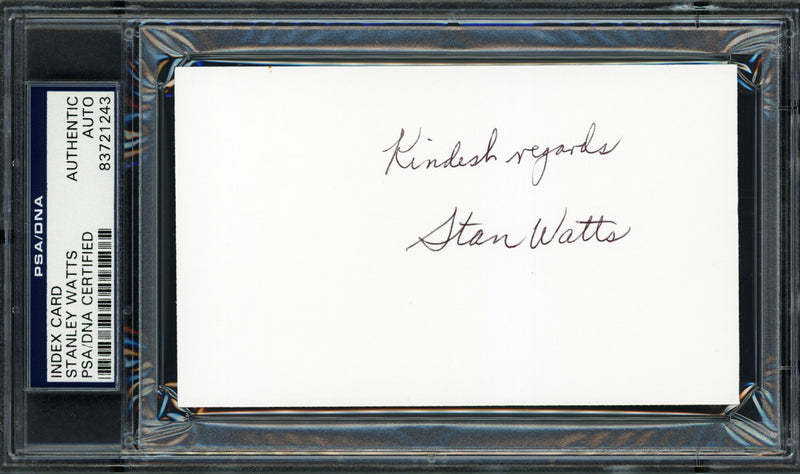 PSA/DNA
INDEX CARD
STANLEY WATTS
PSA/DNA CERTIFIED
AUTHENTIC
AUTO
83721243
Kindest regards
Stan Watts